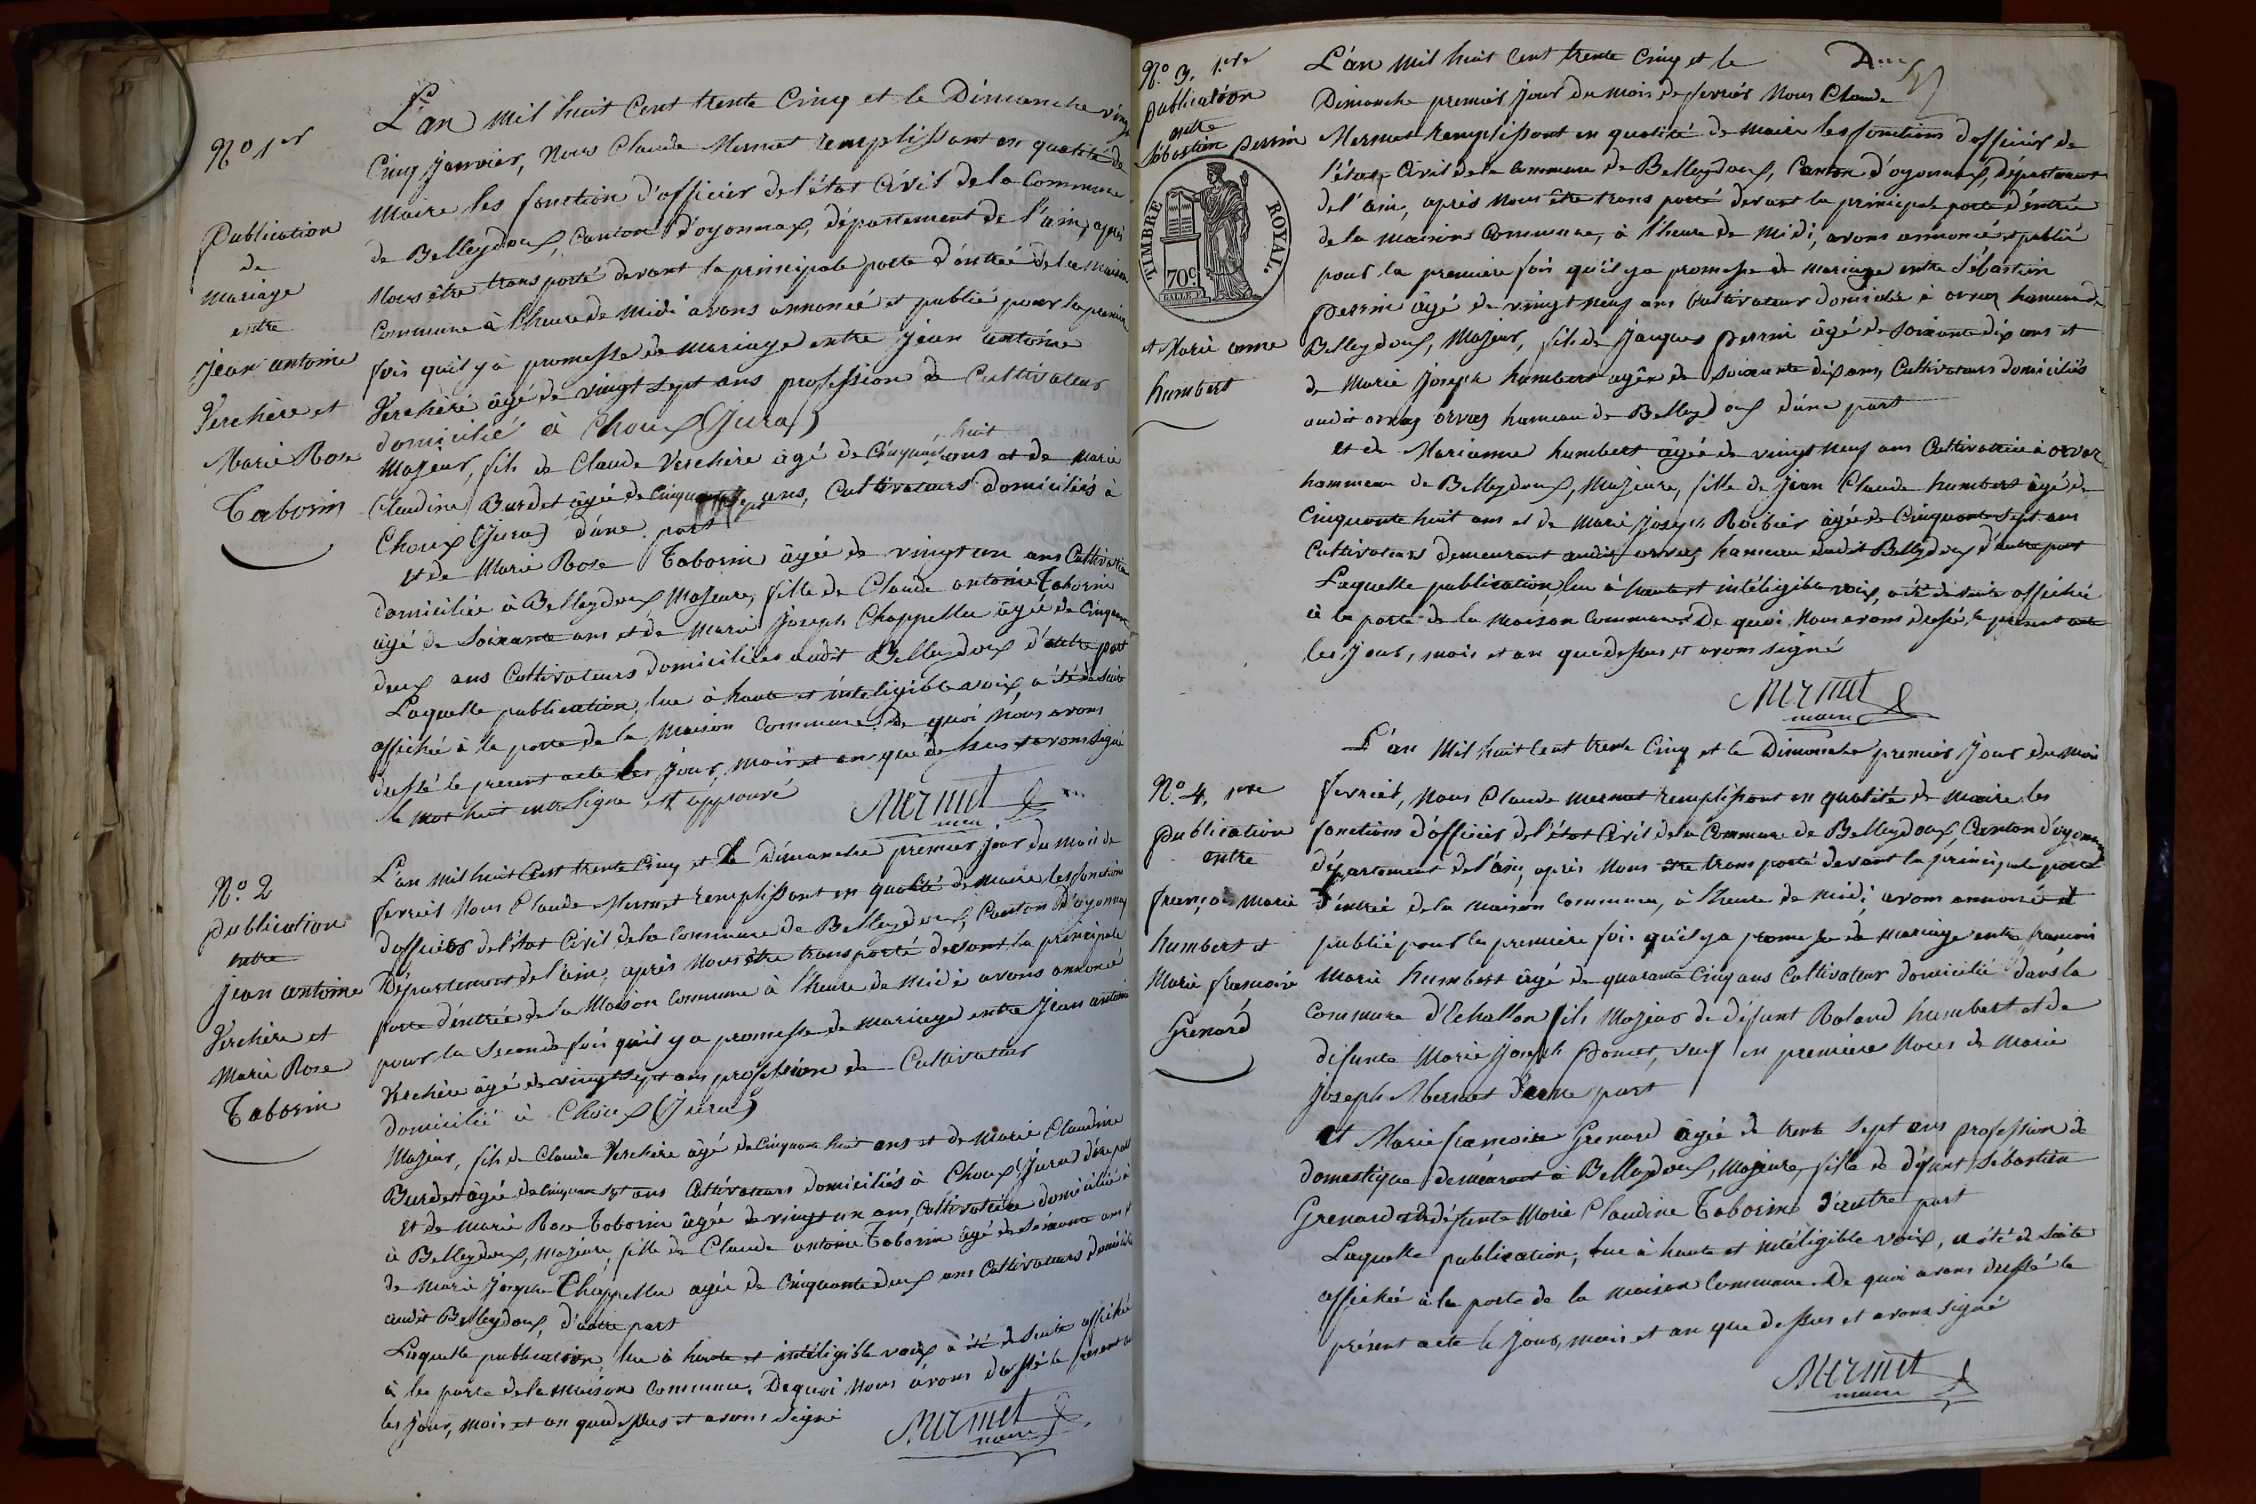 N.o 1er
Publication
de
mariage
entre
jean antoine
Verchère et
Marie Rose
Taborin
L'an mil huit Cent trente Cinq et le Dimanche vingt
Cinq Janvier, Nous Claude Mermet remplissant en qualité de
Maire les fonction d'officier de l'état Civil de la Commune
de Belleydoux, Canton d'oyonnax, département de l'ain, après
Nous être transporté devant la principale porte d'entrée de la maison
Commune à l'heure de midi avons annoncé et publié pour la premiere
fois qu'il y a promesse de mariage entre jean antoine
Verchère âgé de vingt sept ans profession de Cultivateur
domicilié à Choux (Jura)
Majeur, fils de Claude Verchère âgé de Cinquante huit ans et de Marie
Claudine Burdet âgée de Cinquante sept ans, Cultivateurs domiciliés à
Choux (Jura) d'une part
et de Marie Rose Taborin âgée de vingt un ans Cultivatrice
domiciliée à Belleydoux, Majeure, fille de Claude antoine Taborin
âgé de Soixante ans et de Marie Joseph Chappellu âgée de Cinquante
deux ans Cultivateurs domiciliées audit Belleydoux d'autre part
Laquelle publication, lue à haute et inteligible voix, a été de suite
affichée à la porte de la Maison Commune. De quoi Nous avons
dressé le present acte les jour, mois et an que dessus et avons signé
le mot huit interligne est approuvé
Mermet
maire
N.o 2
publication
entre
jean antoine
Verchère et
Marie Rose
Taborin
L'an mil huit Cent trente Cinq et le Dimanche premier jour du mois de
fevrier Nous Claude Mermet remplissant en qualité de maire les fonction
d'officier de l'état Civil de la Commune de Belleydoux, Canton d'oyonnax
Département de l'ain, après Nous être transporté devant la principale
porte d'entrée de la Maison Commune à l'heure de midi avons annoncé
pour la Seconde fois qu'il y a promesse de mariage entre jean antoine
Verchère âgé de vingt sept ans profession de Cultivateur
domicilié à Choux (Jura)
Majeur, fils de Claude Verchère âgé de Cinquante huit ans et de Marie Claudine
Burdet âgée de Cinquante sept ans Cultivateurs domiciliés à Choux (Jura) d'une part
et de Marie Rose Taborin âgée de vingt un ans, Cultivatrice domiciliée
à Belleydoux, Majeure, fille de Claude antoine Taborin âgé de Soixante ans et
de Marie Joseph Chappellu âgée de Cinquante deux ans Cultivateurs domiciliés
audit Belleydoux, d'autre part
Laquelle publication, lue à haute et intéligible voix a été de Suite affichée
à la porte de la Maison Commune. De quoi Nous avons dressé le present acte
les jour, mois et an que dessus et avons signé
Mermet
maire
N.o 3. 1.ere
publication
entre
Sébastien Perrin
TIMBRE ROYAL
70c.
et Marie anne
humbert
L'an mil huit Cent trente Cinq et le
Dimanche premier jour du mois de fevrier Nous Claude
Mermet remplissant en qualité de maire les fonctions d'officier de
l'état Civil de la Commune de Belleydoux, Canton d'oyonnax, Département
de l'ain, après Nous être transporté devant la principale porte d'éntrée
de la maison Commune, à l'heure de Midi, avons annoncé et publié
pour la première fois qu'il y a promesse de mariage entre Sébastien
Perrin âgé de vingt neuf ans Cultivateur domicilié à orvaz hameau de
Belleydoux, Majeur, fils de Jacques Perrin âgé de Soixante dix ans et
de Marie Joseph humbert agée de Soixante dix ans, Cultivateurs domiciliés
audit orvaz orvaz hameau de Belleydoux d'une part
et de Marianne humbert âgée de vingt neuf ans Cultivatrice à orvaz
hammeau de Belleydoux, Majeure, fille de Jean Claude humbert âgé de
Cinquante huit ans et de Marie Joseph Barbier âgée de Cinquante sept ans
Cultivateurs demeurant audit orvaz hameau dudit Belleydoux d'autre part
Laquelle publication, lue à haute et intéligible voix, a été de suite affichée
à la porte de la Maison Commune. De quoi Nous avons dressé le present acte
les jour, mois et an que dessus et avons signé
Mermet
maire
N.o 4. 1ere
publication
entre
françois Marie
humbert et
Marie francoise
Grenard
L'an Mil huit Cent trente Cinq et le Dimanche premier jour du mois
fevrier, Nous Claude Mermet remplissant en qualité de Maire les
fonctions d'officier de l'état Civil de la Commune de Belleydoux, Canton d'oyonnax
département de l'ain, après Nous être transporté devant la principale porte
d'entrée de la Maison Commune, à l'heure de Midi, avons annoncé et
publié pour la première fois qu'il y a promesse de mariage entre francois
Marie humbert âgé de quarante Cinq ans Cultivateur domicilié dans la
Commune d'Echallon fils Majeur de défunt Roland humbert et de
défunte Marie Joseph Poncet, veuf en première Noces de Marie
Joseph Mermet d'une part
et Marie francoise Grenard âgée de trente Sept ans profession de
domestique demeurant à Belleydoux, Majeure, fille de défunt Sebastien
Grenard et de défunte Marie Claudine Taborin d'autre part
Laquelle publication, lue à haute et intéligible voix, a été de Suite
affichée à la porte de la Maison Commune. De quoi avons dressé le
présent acte le jour, mois et an que dessus et avons signé
Mermet
maire